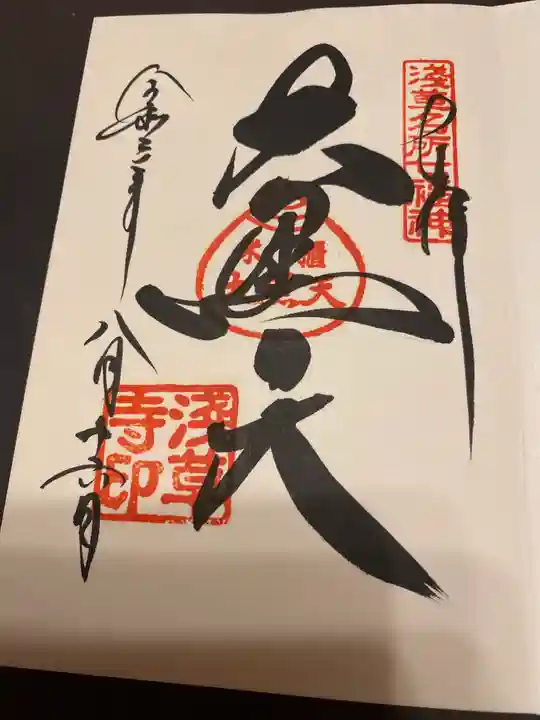 淺草名所七福神
奉拝
大黒天
淺草寺印
令和三年
八月十六日